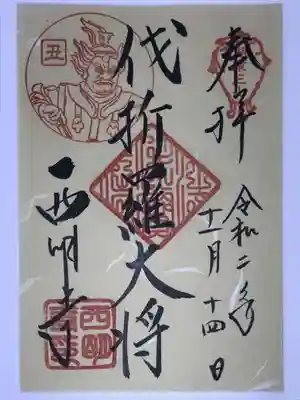 奉拝
令和二年
十一月十四日
伐折羅大将
丑
西明寺